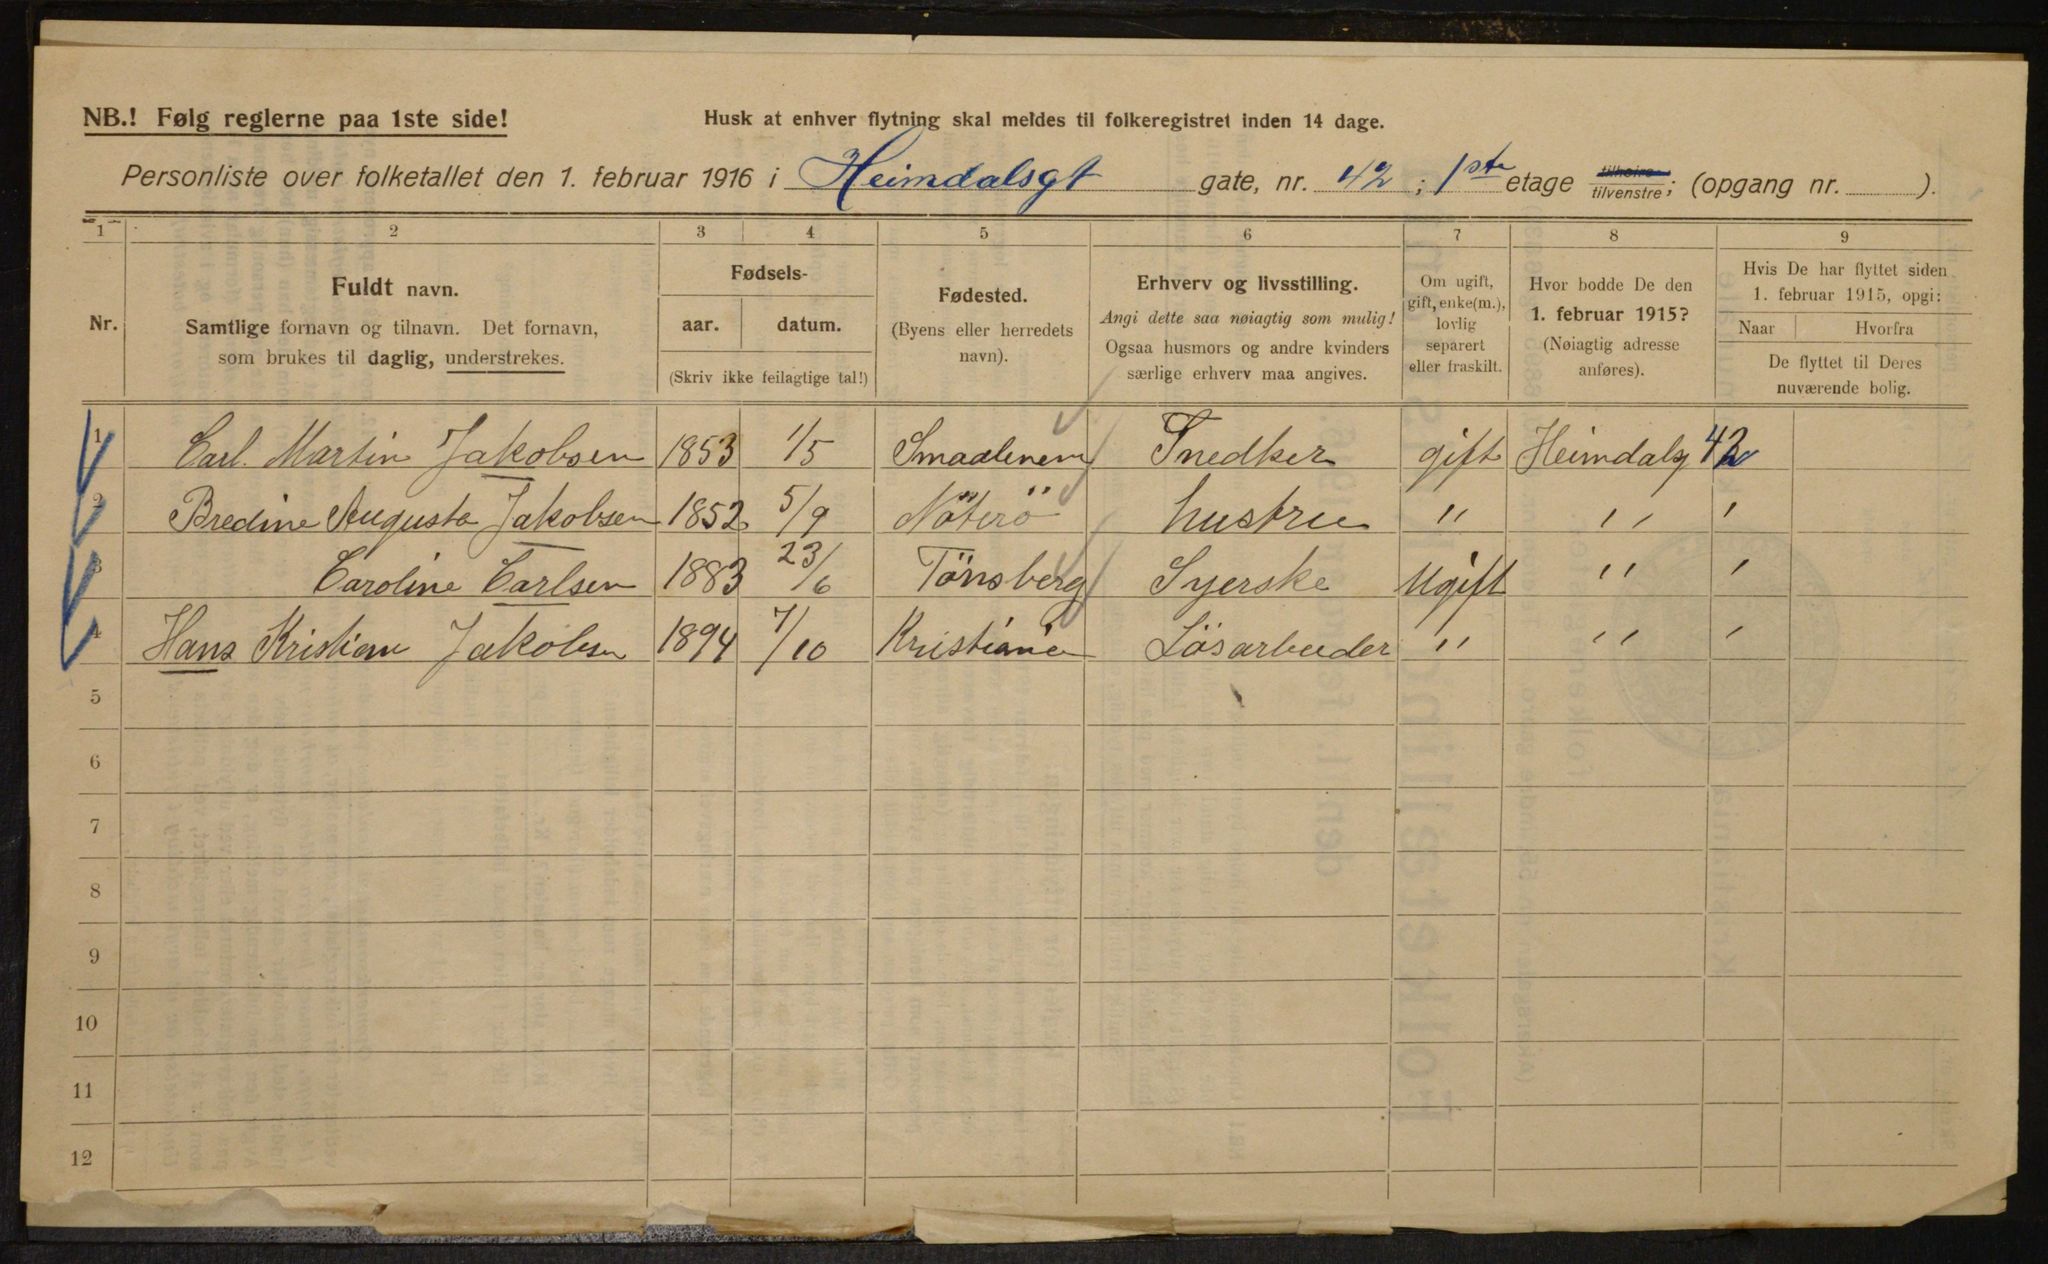 NB.! Følg reglerne paa 1ste side!
Husk at enhver flytning skal meldes til folkeregistret inden 14 dage.
Personliste over folketallet den 1. februar 1916 i Heimdalsgt gate, nr. 42; 1ste etage tilhøire/tilvenstre; (opgang nr. ).
1 2 3 4 5 6 7 8 9
Nr.
Fuldt navn.
Samtlige fornavn og tilnavn. Det fornavn,
som brukes til daglig, understrekes.
Fødsels-
aar. datum.
(Skriv ikke feilagtige tal!)
Fødested.
(Byens eller herredets
navn).
Erhverv og livsstilling.
Angi dette saa nøiagtig som mulig!
Ogsaa husmors og andre kvinders
særlige erhverv maa angives.
Om ugift,
gift, enke(m.),
lovlig
separert
eller fraskilt.
Hvor bodde De den
1. februar 1915?
(Nøiagtig adresse
anføres).
Hvis De har flyttet siden
1. februar 1915, opgi:
Naar Hvorfra
De flyttet til Deres
nuværende bolig.
1 Carl. Martin Jakobsen 1853 1/5 Smaalenene Snedker gift Heimdalsg 42
2 Bredine Augusta Jakobsen 1852 5/9 Nöterö hustru " " "
3 Caroline Carlsen 1883 23/6 Tönsberg Syerske Ugift " "
4 Hans Kristian Jakobsen 1894 7/10 Kristiania Lösarbeider " " "
5
6
7
8
9
10
11
12